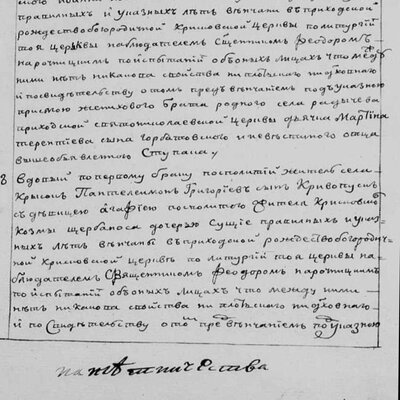 правилныхъ и указныхъ лѣтъ вѣнчани въ приходской
рождество богородичной Криловской церквы по литургіи
тоя церквы наблюдателемъ Священникомъ Феодоромъ
нарочицкимъ по испытаніи обѣоныхъ лицахъ что между
ними нѣтъ никакова свойства ни плотскаго ни духовнаго
и по свидетельству о томъ предъ вѣнчаніемъ подъ указною
присягою жениховаго брата родного села
приходской святониколаевской церквы дячка Мартина
терентіева сина Горбатовскаго и невѣстиного отца
вишеобъявленного Ступака
Вдовый по первому браку посполитій житель села
Крылова Пантелеимонъ Григоріевъ сынъ Кривопустъ
съ дѣвицею Агафіею посполитого жителя Криловского
Козмы Щербакова дочерью сущіе правилныхъ и указ-
ныхъ лѣтъ вѣнчаны въ приходской рождество богородич-
ной Криловской церквѣ по литургіи тоя церквы на-
блюдателемъ Священникомъ Феодоромъ нарочицкимъ
по испытаніи обѣоныхъ лицахъ что между ними
нѣтъ никакова свойства ни плотского ни духовнаго
и по свидѣтельству о томъ предъ вѣнчаніемъ подъ указною
намѣстничества